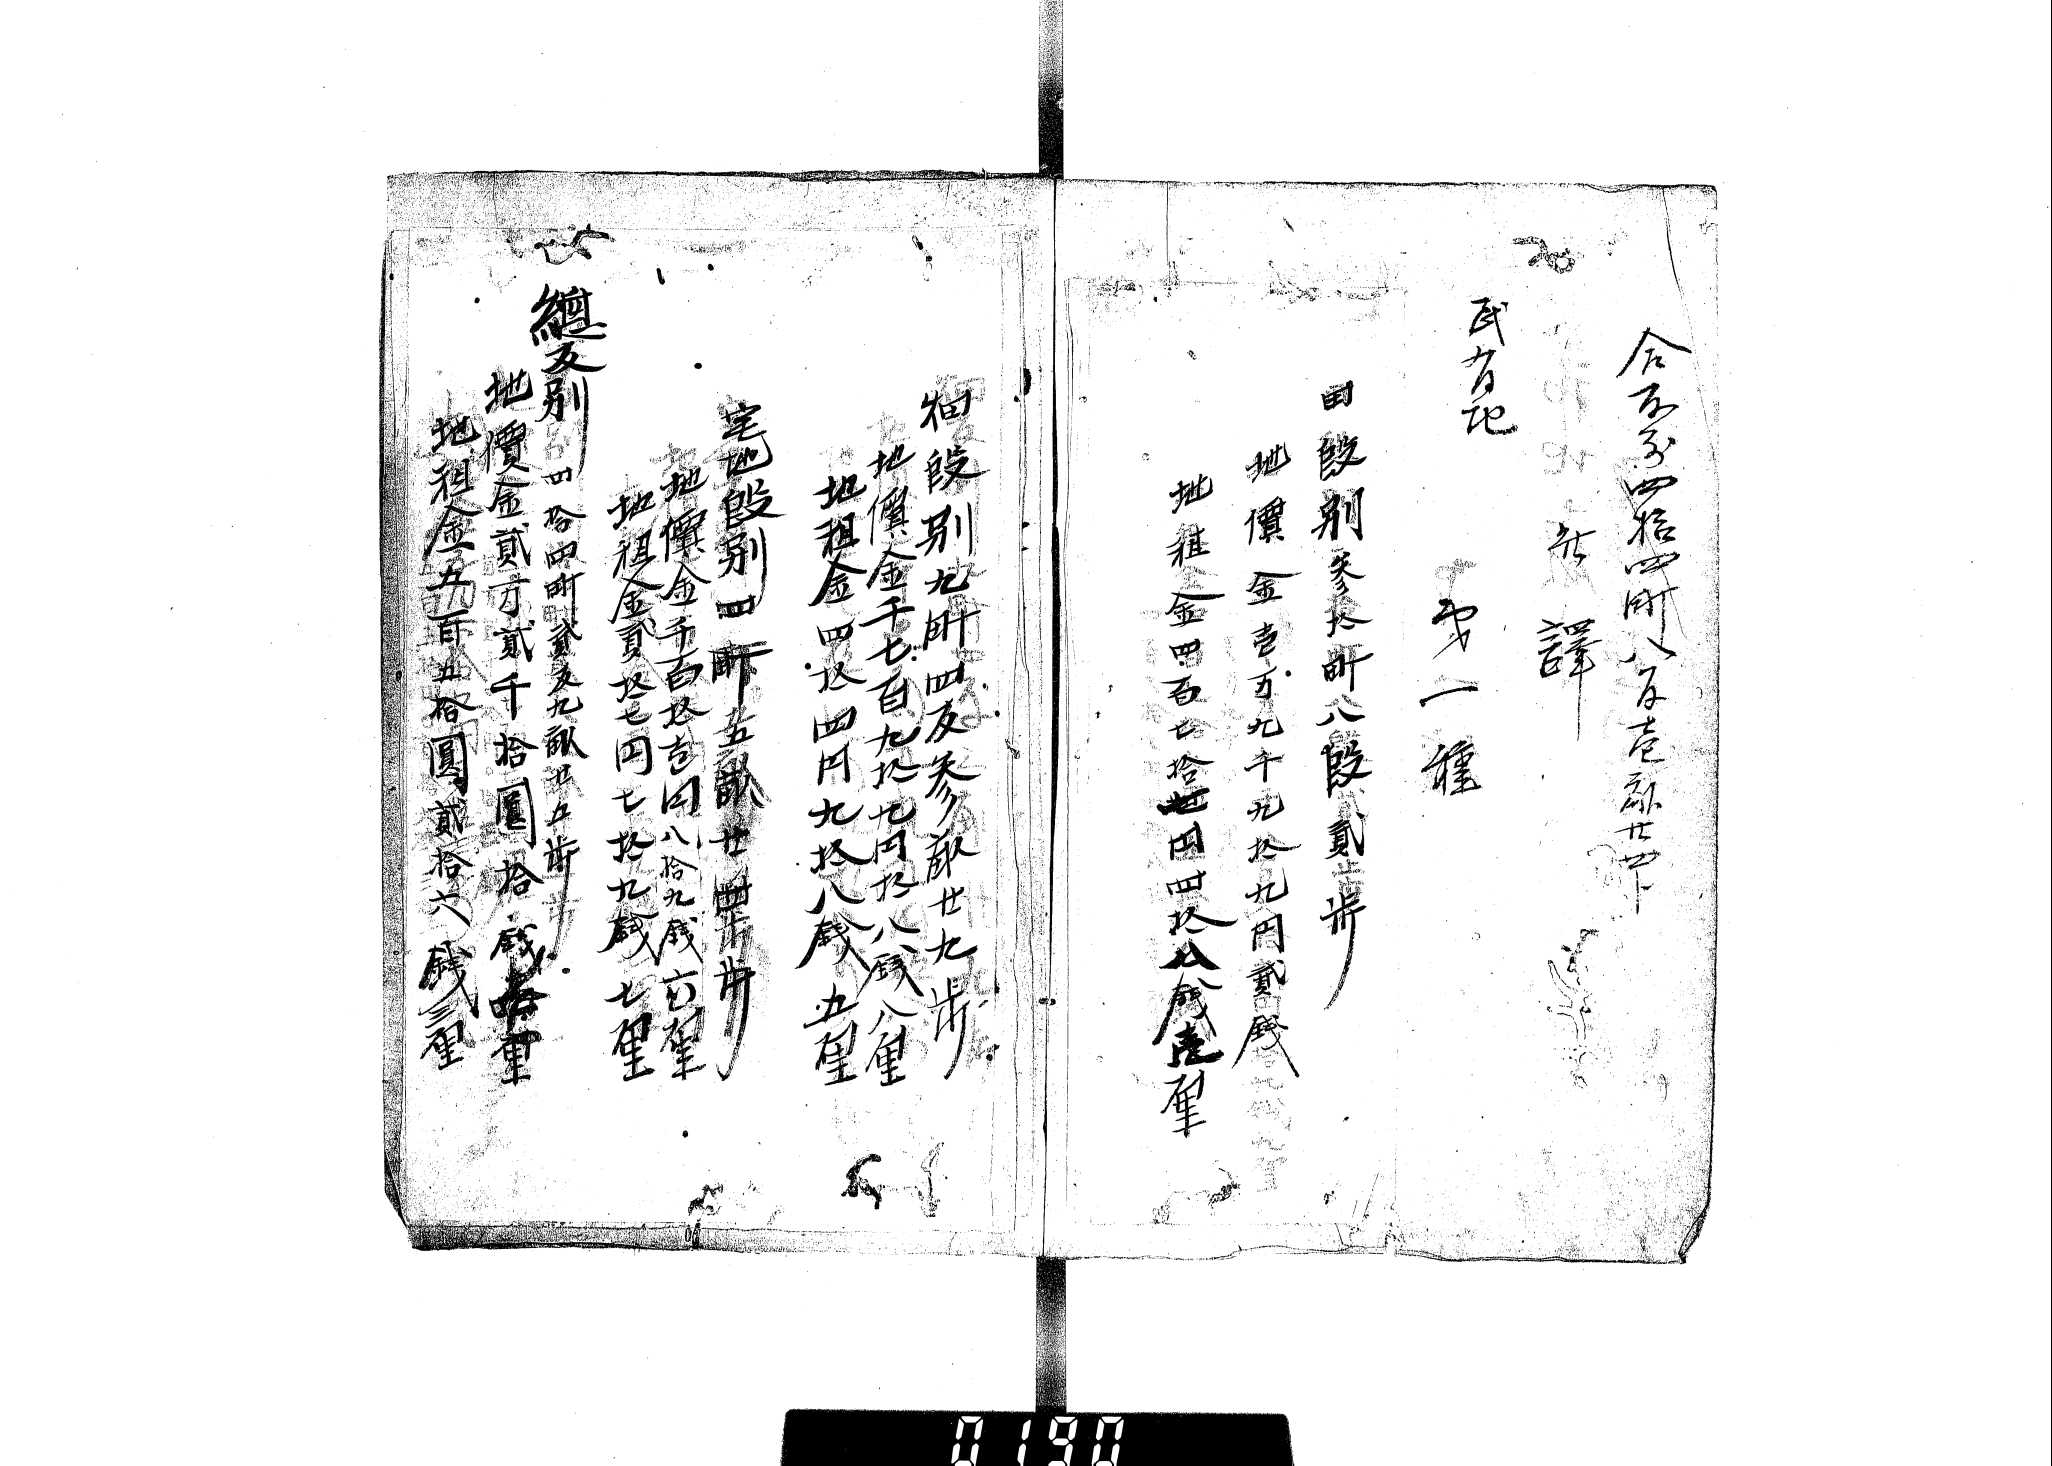 合反別四拾四町八反壱畝廿四卜
此譯
民有地
第一種
田段別参拾町八段貳歩
地價金壱万九千九拾九円貳銭
地租金四百七拾七円四拾八銭壱厘
畑段別九町四反参畝廿九歩
地價金千七百九拾九円拾八銭八厘
地租金四拾四円九拾八銭五厘
宅地段別四町五畝廿四歩
地價金千百拾壱円八拾九銭六厘
地租金貳拾七円七拾九銭七厘
總反別四拾四町貳反九畝廿五歩
地價金貳万貳千拾圓拾銭厘
地租金五百五拾圓貳拾六銭三厘
0190